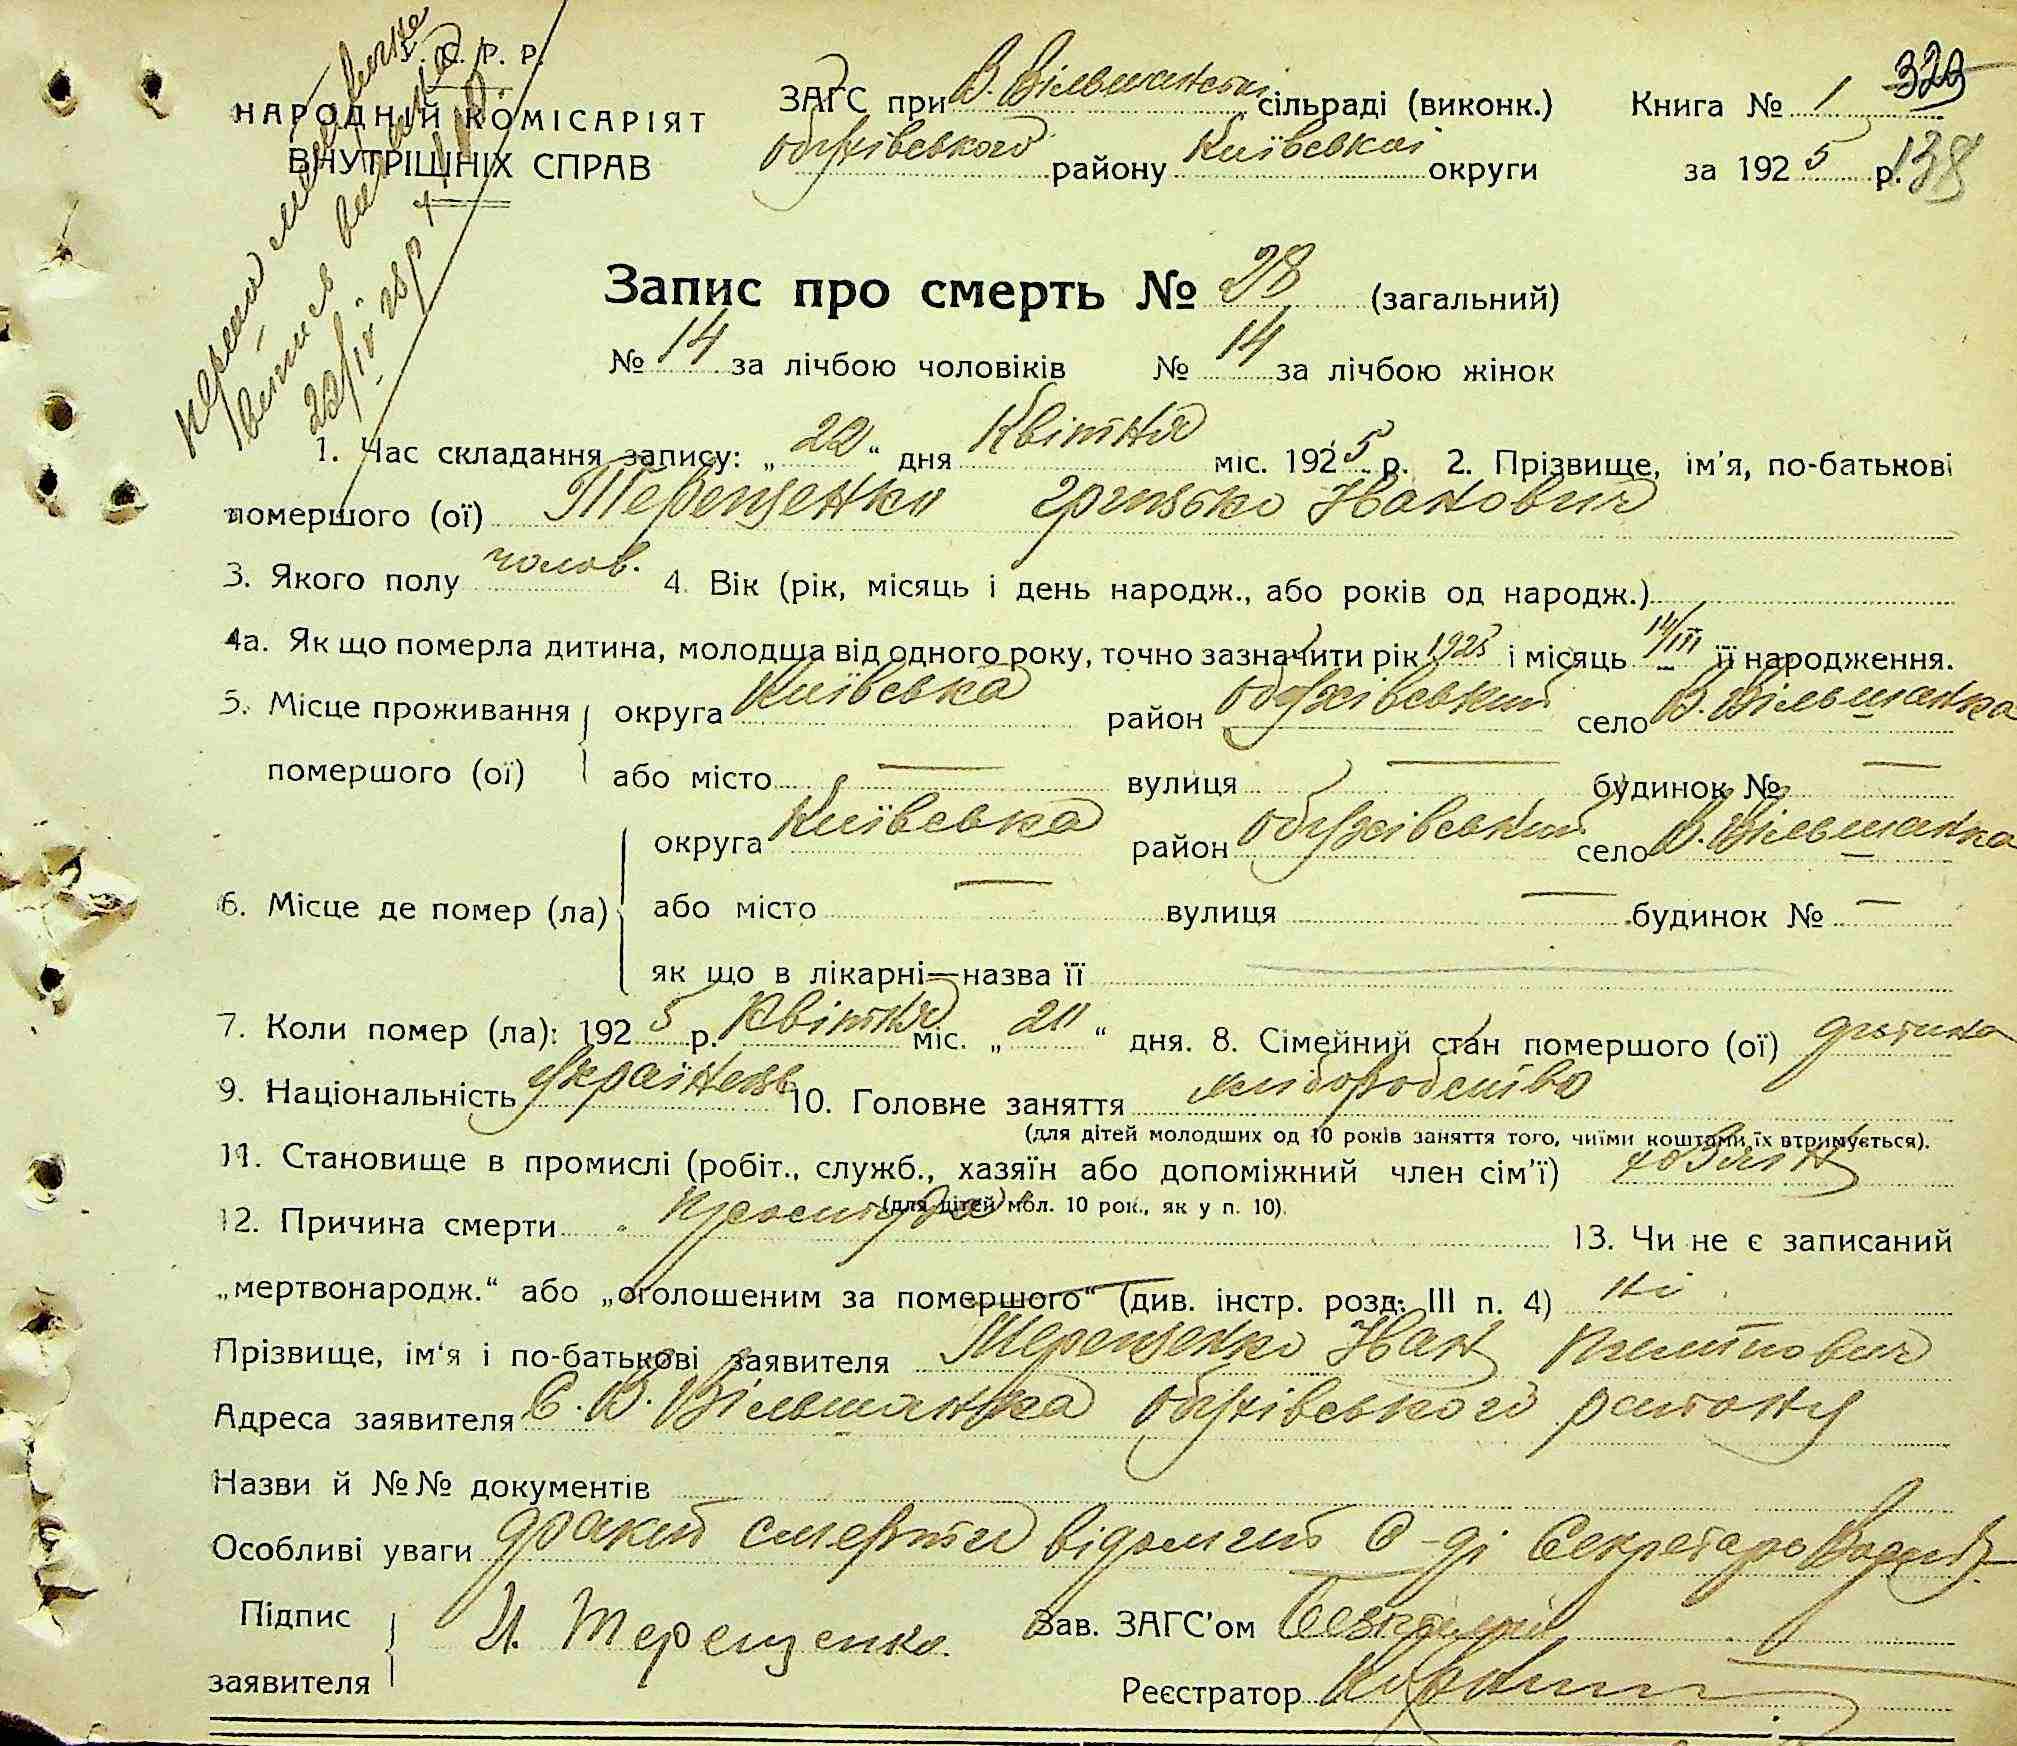 С. Р. Р.
НАРОДНІЙ КОМІСАРІЯТ
ВНУТРІШНІХ СПРАВ
ЗАГС при В. Вільшанській сільраді (виконк.) Книга № 1
329
Обухівського району Київської округи за 1925 р.
138
Запис про смерть № 28 (загальний)
№ 14 за лічбою чоловіків № 14 за лічбою жінок
1. Час складання запису: „22“ дня Квітня міс. 1925 р. 2. Прізвище, ім'я, по-батькові
помершого (ої) Терещенко Грицько Іванович
3. Якого полу чолов. 4. Вік (рік, місяць і день народж., або років од народж.)
4а. Як що померла дитина, молодща від одного року, точно зазначити рік 1925 і місяць 14/III її народження.
5. Місце проживання округа Київська район Обухівський село В. Вільшанка
помершого (ої) або місто — вулиця — будинок № —
округа Київська район Обухівський село В. Вільшанка
6. Місце де помер (ла) або місто — вулиця — будинок № —
як що в лікарні—назва її —
7. Коли помер (ла): 1925 р. Квітня міс. „21“ дня. 8. Сімейний стан помершого (ої) дитина
9. Національність Українець 10. Головне заняття хліборобство
(для дітей молодших од 10 років заняття того, чиїми коштами їх втримується).
11. Становище в промислі (робіт., служб., хазяїн або допоміжний член сім'ї) хазяїн
(для дітей мол. 10 рок., як у п. 10).
12. Причина смерти 13. Чи не є записаний
„мертвонародж.“ або „оголошеним за помершого“ (див. інстр. розд. III п. 4) ні
Прізвище, ім'я і по-батькові заявителя Терещенко Іван
Адреса заявителя С. В. Вільшанка Обухівського району
Назви й №№ документів
Особливі уваги смерти С-ді Секретарь
Підпис
заявителя И. Терещенко.
Зав. ЗАГС'ом
Реєстратор